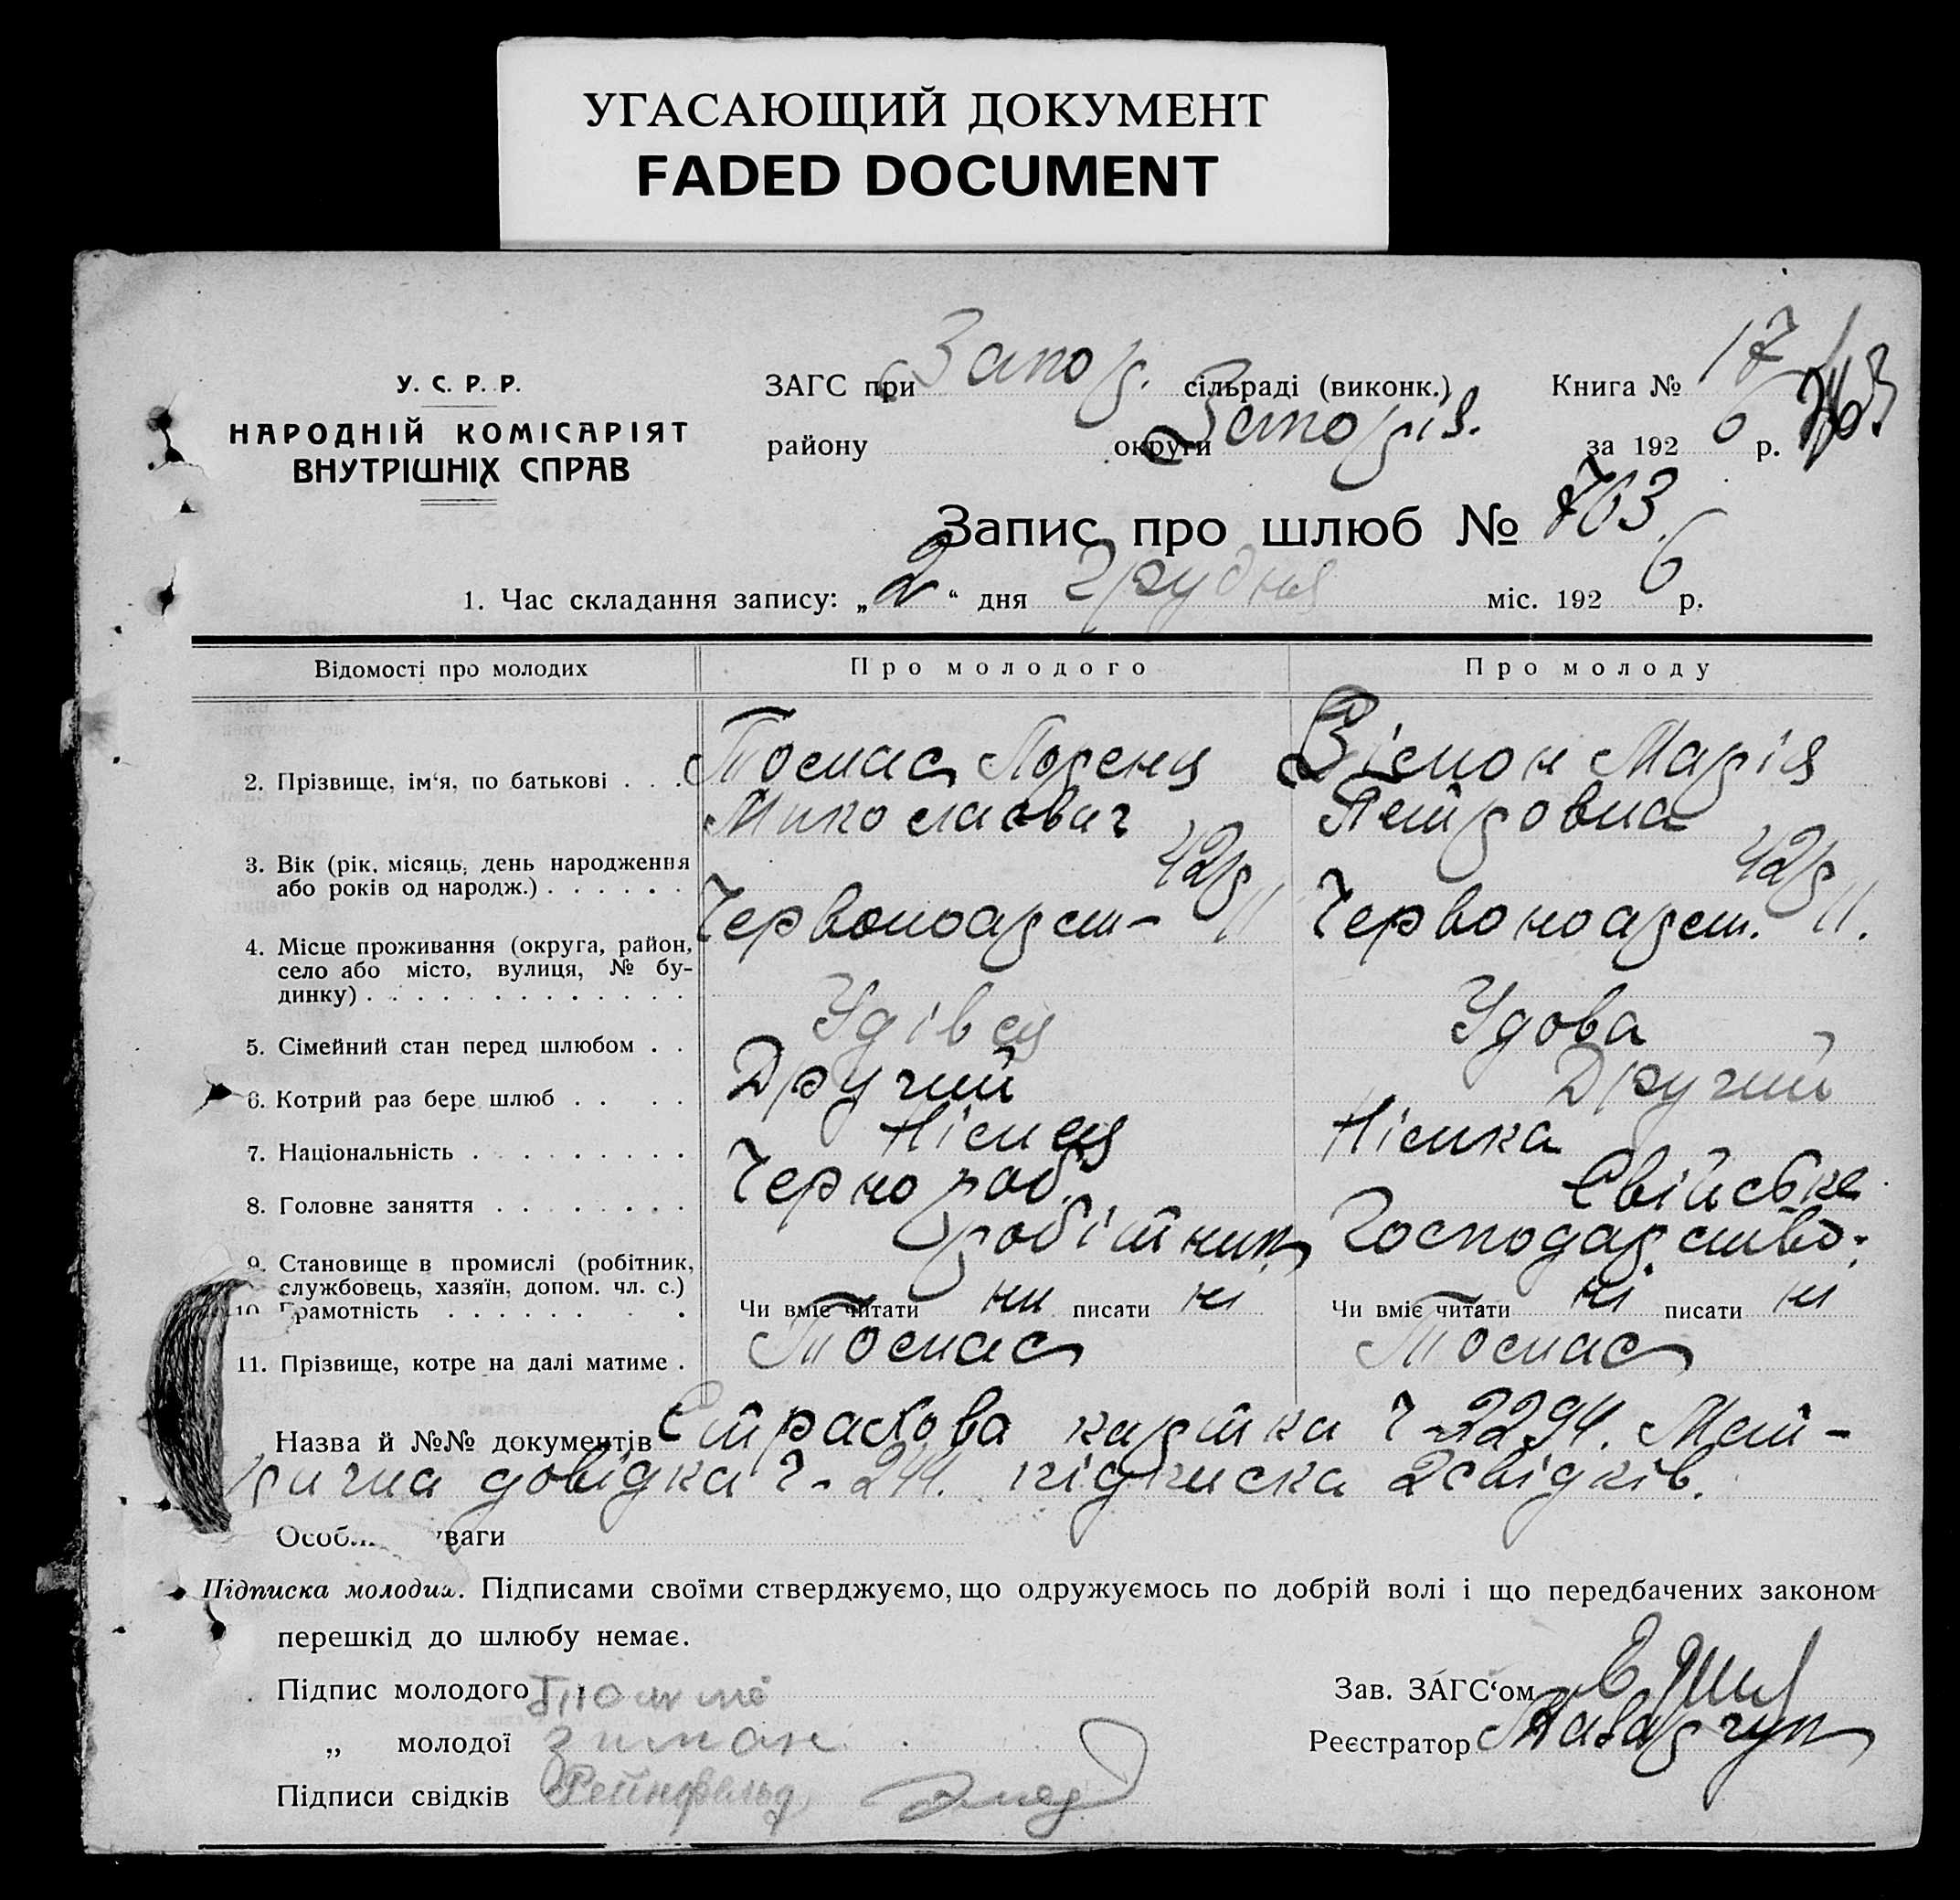 УГАСАЮЩИЙ ДОКУМЕНТ
FADED DOCUMENT
У. С. Р. Р.
НАРОДНІЙ КОМІСАРІЯТ
ВНУТРІШНІХ СПРАВ
ЗАГС при Запор. сільраді (виконк.) Книга № 17
району округи Запоріз. за 1926 р.
Запис про шлюб № 703.
1. Час складання запису: „2“ дня Грудня міс. 1926 р.
Відомості про молодих Про молодого Про молоду
2. Прізвище, ім‘я, по батькові . . . Томас Лоренц Зімон Марія
Миколаєвич Петровна
3. Вік (рік, місяць, день народження 42р 42р
або років од народж.) . . . . . .
4. Місце проживання (округа, район, Червоноарм– 11 Червоноарм. 11.
село або місто, вулиця, № бу-
динку) . . . . . . . . . . . . .
5. Сімейний стан перед шлюбом . . Удівець Удова
6. Котрий раз бере шлюб . . . . Другий Другий
7. Національність . . . . . . . . . Німець Німка
8. Головне заняття . . . . . . . . Чернороб. Свійське
9. Становище в промислі (робітник, робітник Господарство.
службовець, хазяїн, допом. чл. с.)
10. Грамотність . . . . . . . Чи вміє читати ни писати ні Чи вміє читати ні писати ні
11. Прізвище, котре на далі матиме . Томас Томас
Назва й №№ документів Страхова картка ч-2294. Мет-
рична довідка ч-244. підписка 2 свідків.
Особл уваги
Підписка молодих. Підписами своїми стверджуємо, що одружуємось по добрій волі і що передбачених законом
перешкід до шлюбу немає.
Підпис молодого
Зав. ЗАГС‘ом
„ молодої Зиман
Реєстратор
Підписи свідків Рейнфельд